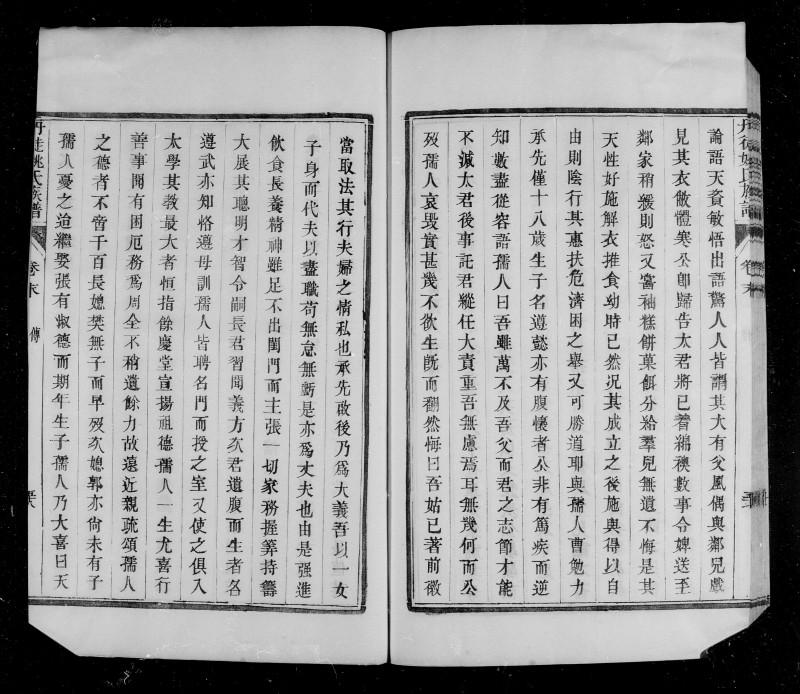 論語天資敏悟出語驚人人皆謂其大有父風偶與鄰兒戲
見其衣敝體寒公卽歸告太君將已着綿襖數事令婢送至
鄰家稍緩則怒又嘗袖糕餅菓餌分給羣兒無遺不悔是其
天性好施解衣推食幼時已然況其成立之後施與得以自
由則陰行其惠扶危濟困之舉又可勝道耶與孺人曹勉力
承先僅十八歲生子名遵懿亦有腹懷者公非有篤疾而逆
知數盡從容語孺人曰吾雖萬不及吾父而君之志節才能
不減太君後事託君縱任大責重吾無慮焉耳無幾何而公
歿孺人哀毀實甚幾不欲生旣而翻然悔曰吾姑已著前徽
當取法其行夫婦之情私也承先啟後乃爲大義吾以一女
子身而代夫以盡職苟無怠無虧是亦爲丈夫也由是强進
飲食長養精神雖足不出閨門而主張一切家務握筭持籌
大展其聰明才智令嗣長君習聞義方次君遺腹而生者各
遵武亦知恪遵母訓孺人皆聘名門而授之室又使之俱入
太學其教最大者恒指餘慶堂宣揚祖德孺人一生尤喜行
善事聞有困厄務爲周全不稍遺餘力故遠近親疏頌孺人
之德者不啻千百長媳樊無子而早歿次媳郭亦尙未有子
孺人憂之迨繼娶張有淑德而期年生子孺人乃大喜曰天
丹徒姚氏族譜
卷末
傳